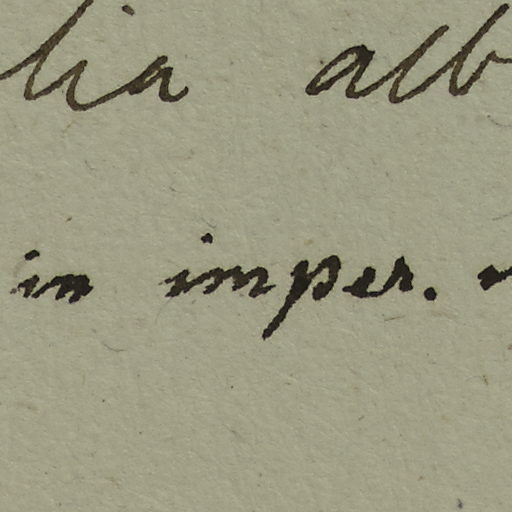 lia alb
in imper.